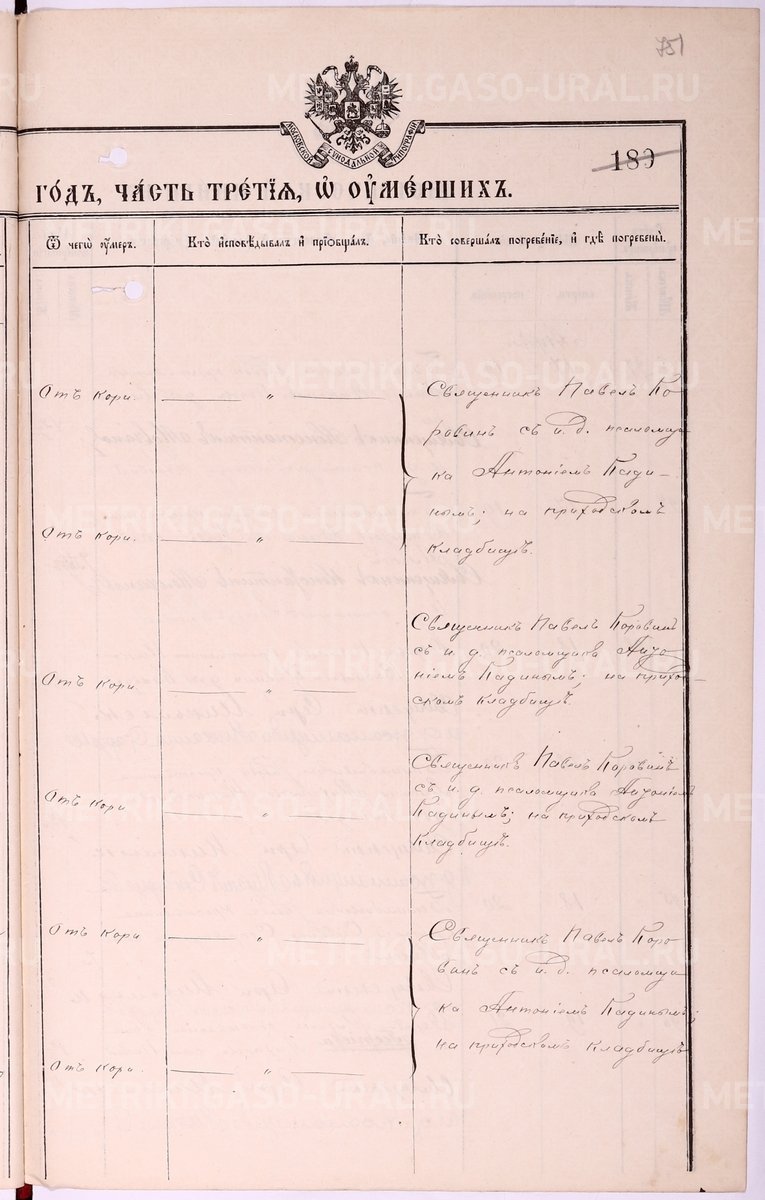 751
МОСКОВСКОЙ СѴНОДАЛЬНОЙ ТИПОГРАФІИ
189
ГО́ДЪ, ЧА́СТЬ ТРЕ́ТІѦ, Ѽ ОУ҆МЕ́РШИХЪ.
Ѿ чегѡ̀ оу҆́меръ.
Кто̀ и҆сповѣ́дывалъ и҆ прїѡбща́лъ.
Кто̀ соверша́лъ погребе́нїе, и҆ гдѣ̀ погребены̀.
Отъ кори. „
Священникъ Павелъ Ко-
ровинъ съ и. д. псаломщи
ка Антоніемъ Кади-
нымъ; на приходскомъ
кладбищѣ.
Отъ кори. „
Отъ кори. „
Священникъ Павелъ Коровинъ
съ и. д. псаломщика Анто-
ніемъ Кадинымъ; на приход-
скомъ кладбищѣ.
Отъ кори „
Священникъ Павелъ Коровинъ
съ и. д. псаломщика Антоніемъ
Кадинымъ; на приходскомъ
кладбищѣ.
Отъ кори „
Священникъ Павелъ Коро-
винъ съ и. д. псаломщи
ка Антоніемъ Кадинымъ;
на приходскомъ кладбищѣ
Отъ кори. „
METRIKI.GASO-URAL.RU